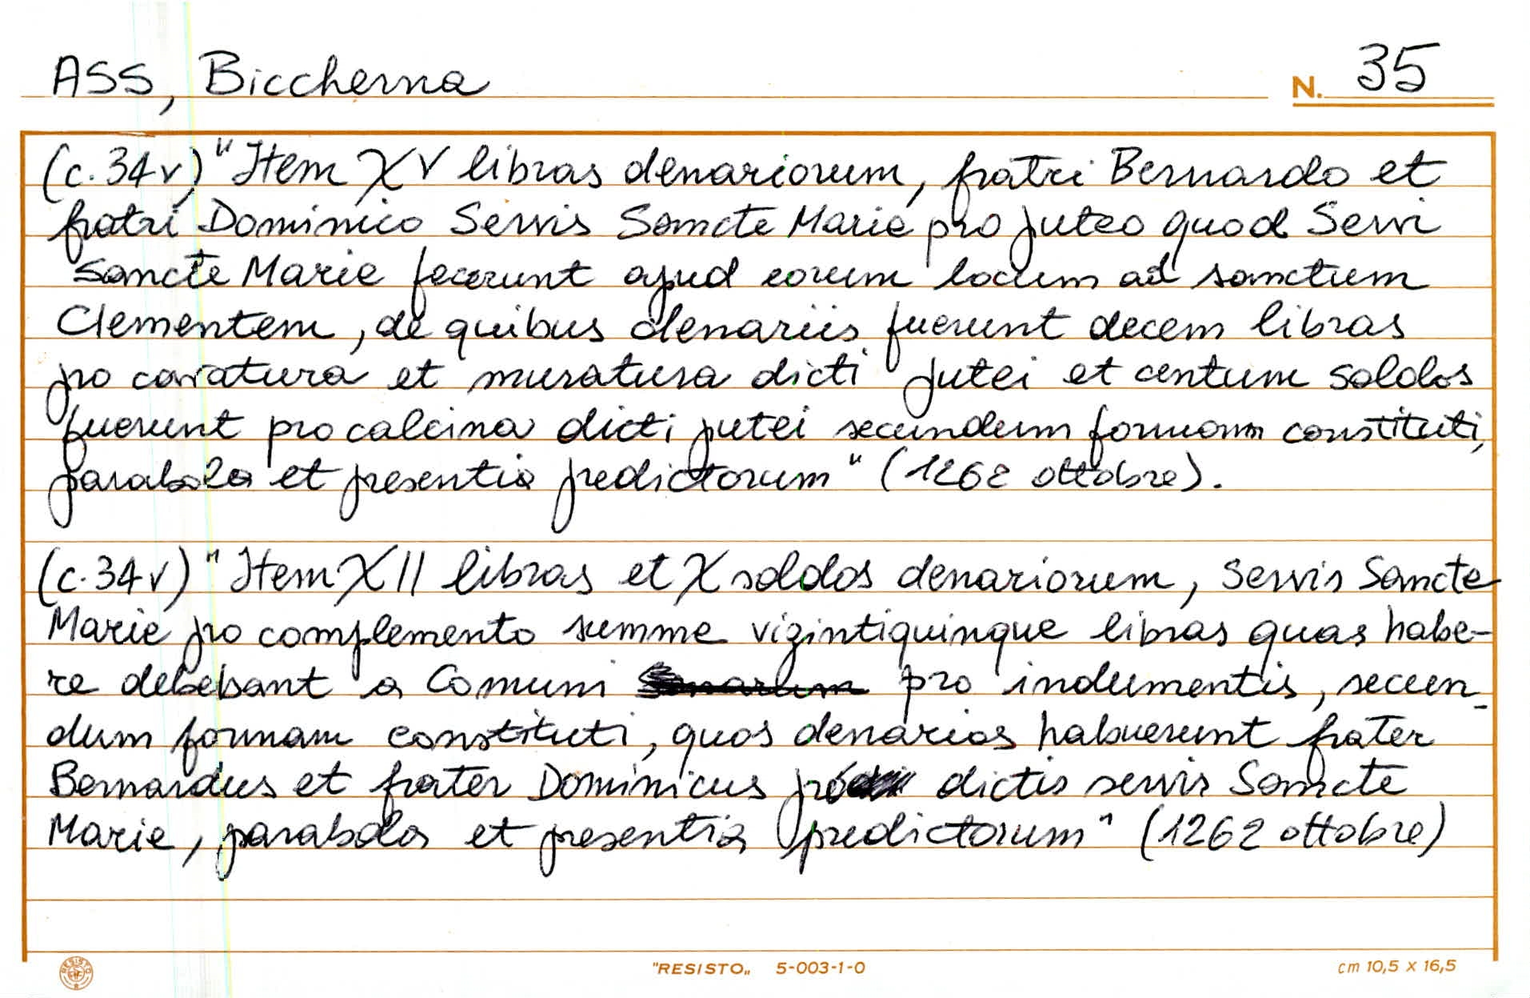 ASS, Biccherna
N. 35
(c. 34v) "Item XV libras denariorum, fratri Bernardo et
fratri Dominico Servis Sancte Marie pro puteo quod Servi
Sancte Marie fecerunt apud eorum locum ad sanctum
Clementem, de quibus denariis fuerunt decem libras
pro cavatura et muratura dicti putei et centum soldos
fuerunt pro calcina dicti putei secundum formam constituti,
parabola et presentia predictorum" (1262 ottobre).
(c. 34v) "Item XII libras et X soldos denariorum, servis Sancte
Marie pro complemento summe vigintiquinque libras quas habe-
re debebant a Comuni pro indumentis, secun-
dum formam constituti, quos denarios habuerunt frater
Bernardus et frater Dominicus pro dictis servis Sancte
Marie, parabola et presentia predictorum" (1262 ottobre)
RESISTO
"RESISTO„ 5-003-1-0
cm 10,5 x 16,5